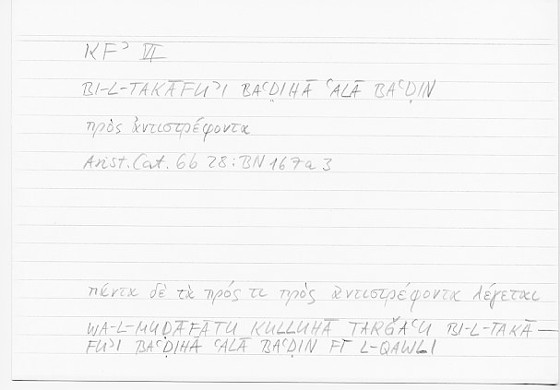 KFʾ VI
BI-L-TAKĀFUʾI BAʿḌIHĀ ʿALĀ BAʿḌIN
πρὸς ἀντιστρέφοντα
Arist. Cat. 6b 28 : BN 167a 3
πάντα δὲ τὰ πρός τι πρὸς ἀντιστρέφοντα λέγεται
WA-L-MUḌĀFĀTU KULLUHĀ TARǦAʿU BI-L-TAKĀ–
FUʾI BAʿḌIHĀ ʿALĀ BAʿḌIN FĪ L-QAWLI